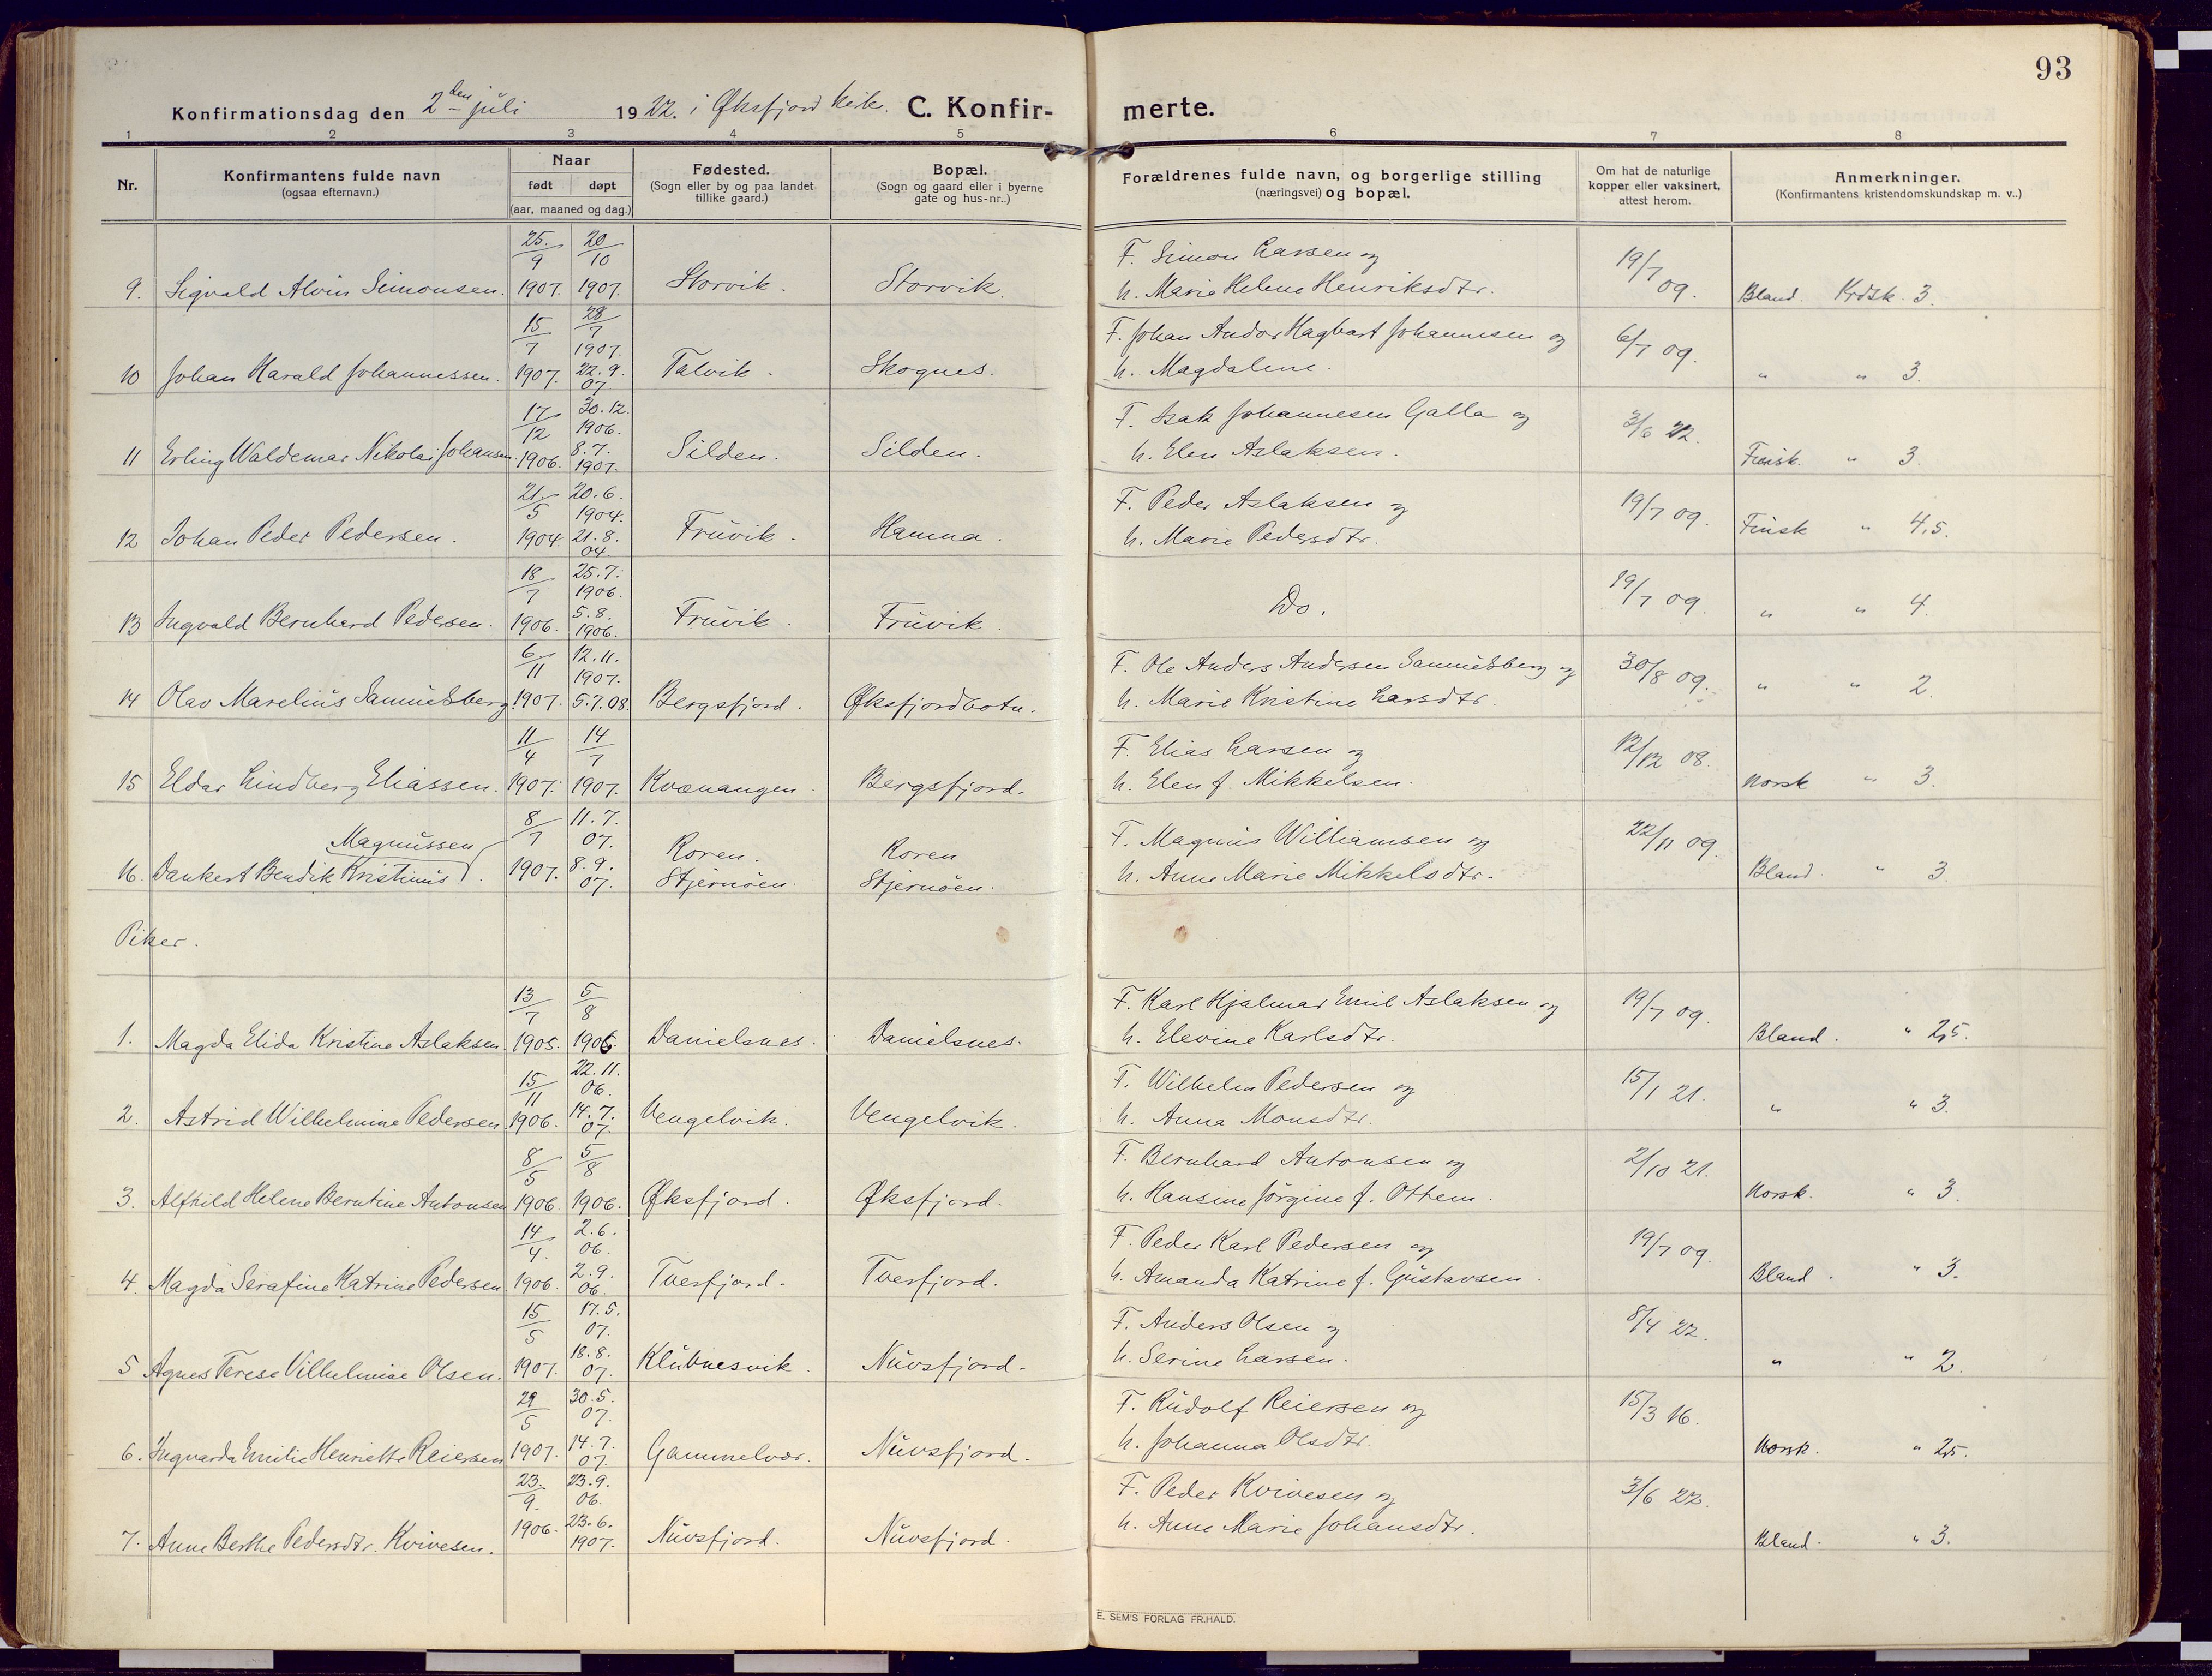 93
Konfirmationsdag den 2den juli 1922. i Øksfjord kirke. C. Konfirmerte.
1 2 3 4 5 6 7 8
Nr.
Konfirmantens fulde navn
(ogsaa efternavn.)
Naar
født døpt
(aar, maaned og dag.)
Fødested.
(Sogn eller by og paa landet
tillike gaard.)
Bopæl.
(Sogn og gaard eller i byerne
gate og hus-nr..)
Forældrenes fulde navn, og borgerlige stilling
(næringsvei) og bopæl.
Om hat de naturlige
kopper eller vaksinert,
attest herom.
Anmerkninger.
(Konfirmantens kristendomskundskap m. v..)
25. 20
9 10
F. Simon Larsen og
19/7 09.
9. Sigvald Alvin Simonsen. 1907. 1907. Storvik. Storvik.
h. Marie Helene Henriksdtr.
Bland. Krdsk. 3.
15 28
7 7
1907.
F. Johan Andor Hagbart Johannesen og
6/7 09.
10 Johan Harald Johannessen. 1907. 22.9. Talvik. Skognes.
07
h. Magdalene.
" " 3.
17 30.12.
12 1906.
F. Isak Johannesen Galla og
3/6 22.
11 Erling Waldemar Nikolai Johansen 1906. 8.7. Silden. Silden.
1907.
h. Elen Aslaksen.
Finsk. " 3.
21 20.6.
5 1904.
F. Peder Aslaksen og
19/7 09.
12 Johan Peder Pedersen. 1904. 21.8. Fruvik. Hamna.
04
h. Marie Pedersdtr.
Finsk " 4,5.
18 25.7.
7 1906.
Do.
19/7 09.
13 Ingvald Bernhard Pedersen. 1906. 5.8. Fruvik. Fruvik
1906.
" " 4.
6 12.11.
11 1907.
F. Ole Anders Andersen Samuelsberg og
30/8 09.
14 Olav Marelius Samuelsberg. 1907. 5.7.08. Bergsfjord. Øksfjordbotn.
h. Marie Kristine Larsdtr.
" " 2.
11 14
4 7
F. Elias Larsen og
12/12 08.
15 Eldar Lindberg Eliassen. 1907. 1907. Kvænangen. Bergsfjord.
h. Elen f. Mikkelsen.
Norsk " 3.
8 11.7.
7 07.
Magnussen
F. Magnus Williamsen og
22/11 09.
16. Dankert Bendik Kristinus. 1907. 8.9. Koren. Koren
07. Stjernøen. Stjernøen.
h. Anne Marie Mikkelsdtr.
Bland. " 3
Piker.
13 5
7 8
F. Karl Hjalmar Emil Aslaksen og
19/7 09.
1. Magda Elida Kristine Aslaksen. 1905. 1906. Danielsnes. Danielsnes.
h. Elevine Karlsdtr.
Bland. " 2,5.
15 22.11.
11 06.
F. Wilhelm Pedersen og
15/1 21.
2. Astrid Wilhelmine Pedersen. 1906. 14.7. Vengelvik. Vengelvik.
07.
h. Anna Monsdtr.
" " 3.
8 5
5 8
F. Bernhard Antonsen og
2/10 21.
3. Alfhild Helene Berntine Antonsen 1906. 1906. Øksfjord. Øksfjord.
h. Hansine Jørgine f. Ottem.
Norsk. " 3.
14 2.6.
4. 06.
F. Peder Karl Pedersen og
19/7 09.
4. Magda Serafine Katrine Pedersen. 1906. 2.9. Tverfjord. Tverfjord.
06.
h. Amanda Katrine f. Gustavsen.
Bland. " 3.
15 17.5.
5 07.
F. Anders Olsen og
8/4 22.
5 Agnes Terese Vilhelmine Olsen. 1907. 18.8. Klubnesvik. Nuvsfjord.
07.
h. Serine Larsen.
" " 2.
29 30.5.
5 07.
F. Rudolf Reiersen og
15/3 16.
6. Ingvarda Emilie Henriette Reiersen 1907. 14.7. Gammelvær. Nuvsfjord.
07.
h. Johanna Olsdtr.
Norsk. " 2,5.
23. 23.9.
9. 06.
F. Peder Kvivesen og
3/6 22.
7. Anne Berthe Pedersdtr. Kvivesen. 1906. 23.6. Nuvsfjord. Nuvsfjord.
1907.
h. Anne Marie Johansdtr.
Bland. " 3.
E. SEM'S FORLAG FR.HALD.